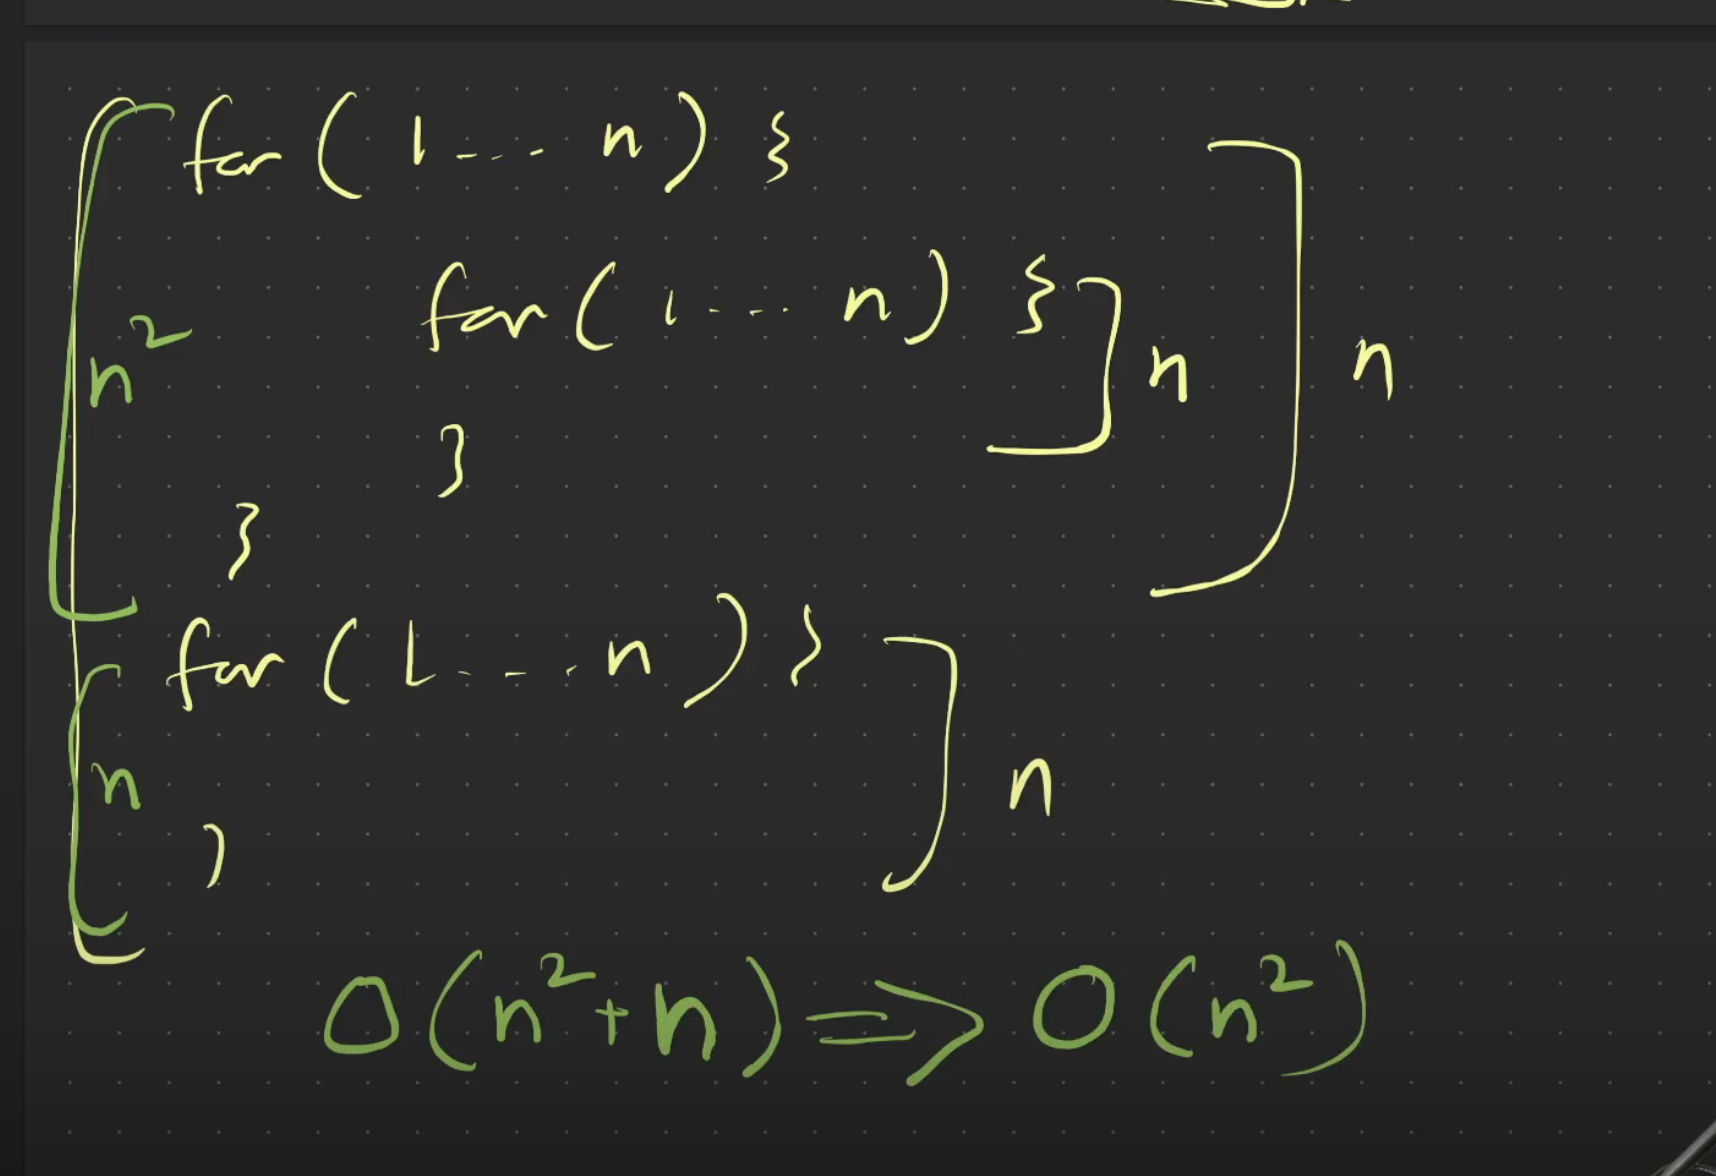 for ( 1 --- n ) {
for ( 1 --- n ) {
n
n
n²
}
}
for ( 1 --- n ) {
n
n
}
O(n²+n) => O(n²)